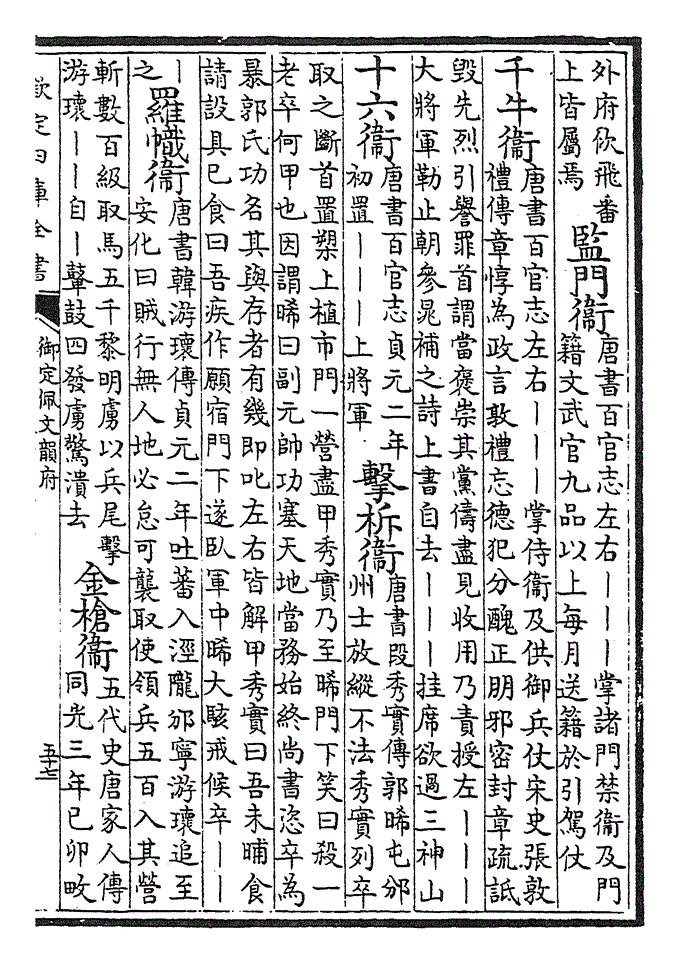 外府佽飛番
上皆屬焉
監門衞
唐書百官志左右｜｜｜掌諸門禁衞及門
籍文武官九品以上每月送籍於引駕仗
千牛衞
唐書百官志左右｜｜｜掌侍衞及供御兵仗宋史張敦
禮傳章惇為政言敦禮忘德犯分醜正朋邪密封章疏詆
毀先烈引譽罪首謂當褒崇其黨儔盡見收用乃責授左｜｜｜
大將軍勒止朝參晁補之詩上書自去｜｜｜挂席欲過三神山
十六衞
唐書百官志貞元二年
初置｜｜｜上將軍
擊柝衞
唐書段秀實傳郭晞屯邠
州士放縱不法秀實列卒
取之斷首置槊上植市門一營盡甲秀實乃至晞門下笑曰殺一
老卒何甲也因謂晞曰副元帥功塞天地當務始終尚書恣卒為
暴郭氏功名其與存者有幾即叱左右皆解甲秀實曰吾未晡食
請設具已食曰吾疾作願宿門下遂臥軍中晞大駭戒候卒｜｜
｜
之
羅幟衞
唐書韓游瓌傳貞元二年吐蕃入涇隴邠寧游瓌追至
安化曰賊行無人地必怠可襲取使領兵五百入其營
斬數百級取馬五千黎明虜以兵尾擊
游瓌｜｜自｜鼙鼓四發虜驚潰去
金槍衞
五代史唐家人傳
同光三年已卯畋
欽定四庫全書
御定佩文韻府
五十七